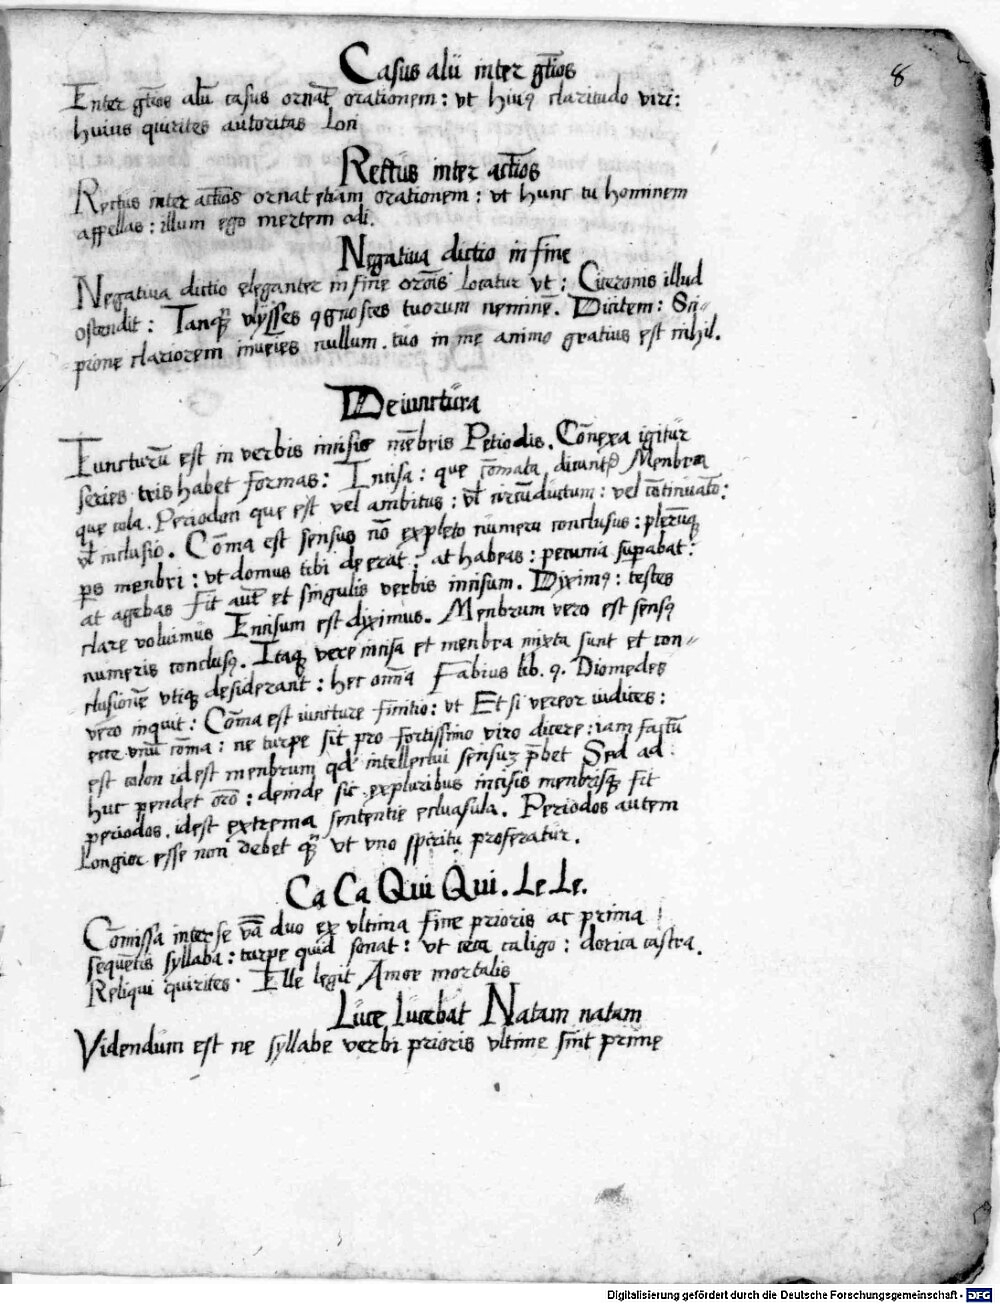 8
Casus alii inter gt̄ios
Inter gt̄ios alii casus ornat̄ orationem : ut huiꝰ claritudo viri :
huius quirites autoritas Lori
Rectus inter actīos
Rectus inter actīos ornat etiam orationem : ut hunc tu hominem
appellas : illum ego mertem odi.
Negativa dictio in fine
Negativa dictio eleganter in fine orōis locatur ut : Ciceronis illud
ostendit : Tanqm̄ ulysses ꝯgnosces tuorum neminē. Diutem : Sci-
pione clariorem invēies nullum. tuo in me animo gratius est nihil.
De iunctura
Iuncturū est in verbis incisis mēbris Petiodis. Cōnexa igitur
series tris habet formas : Incisa : que cōmata dicuntᷣ Menbra
que cola. Periodon que est vel ambitus : ul̄ circūdictum : vel cōntinuatō :
ul̄ inclusio. Cōma est sensus nō expleto numeru conclusus : plerūqꝫ
ps menbri : ut domus tibi deerat ; at habeas : pecunia supabat :
at agebas fit aut̄ et singulis verbis incisum. Diximꝰ : testes
dare volumus Incisum est diximus. Menbrum vero est sensꝰ
numeris conclusꝰ. Itaqꝫ vere incisa et menbra mixta sunt et con-
clusionē utiqꝫ desiderant : hec omīa Fabius lib. 9. Diomedes
vero inquit : Cōma est iuncture finitio : ut Et si vereor iudices :
ecce unū cōma : ne turpe sit pro fortissimo viro dicere : iam factū
est colon id est menbrum qd̄ intellectui sensuꝫ p̄bet Sed ad
huc pendet orō : deinde sic ex pluribus incisis menbrisqꝫ fit
periodos. idest extrema sententie ecluasula. Periodos autem
Longior esse non debet qm̄ ut uno spiritu proferatur.
Ca Ca Qui Qui. Le Le.
Cōmissa inter se v̄ā duo ex ultima fine prioris ac prima
sequētis syllaba : turpe quid sonat : ut ceca caligo : dorica castra.
Reliqui quirites. Ille legit Amor mortalis
Luce lucebat Natam natam
Videndum est ne syllabe verbi prioris ultime sint prime
Digitalisierung gefördert durch die Deutsche Forschungsgemeinschaft - DFG